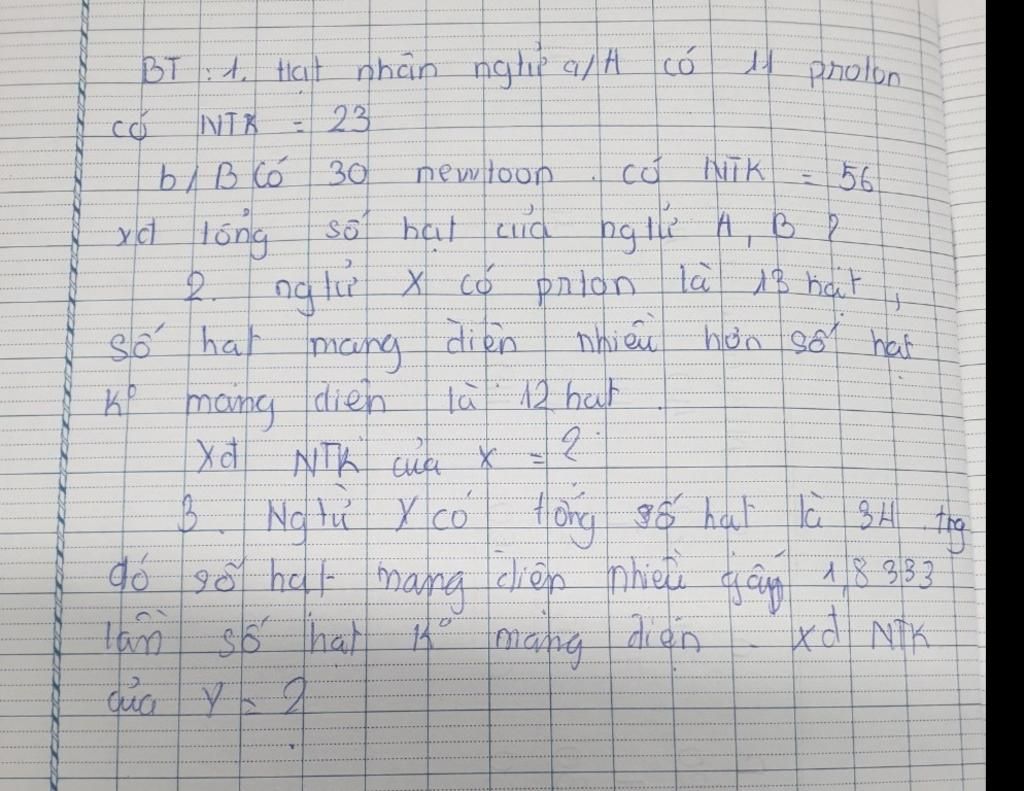 BT : 1. Hạt nhân ngtử a/ A có 11 proton
có NTK = 23
b/ B có 30 newtoon . có NTK = 56
xđ tổng số hạt của ngtử A, B ?
2. ngtử X có prolon là 13 hạt,
số hạt mang điện nhiều hơn số hạt
K° mang điện là 12 hạt.
Xđ NTK của X = ?
3. Ngtử Y có tổng số hạt là 34 trg
đó số hạt mang điện nhiều gấp 1,8333
lần số hạt K° mang điện . xđ NTK
của Y = ?